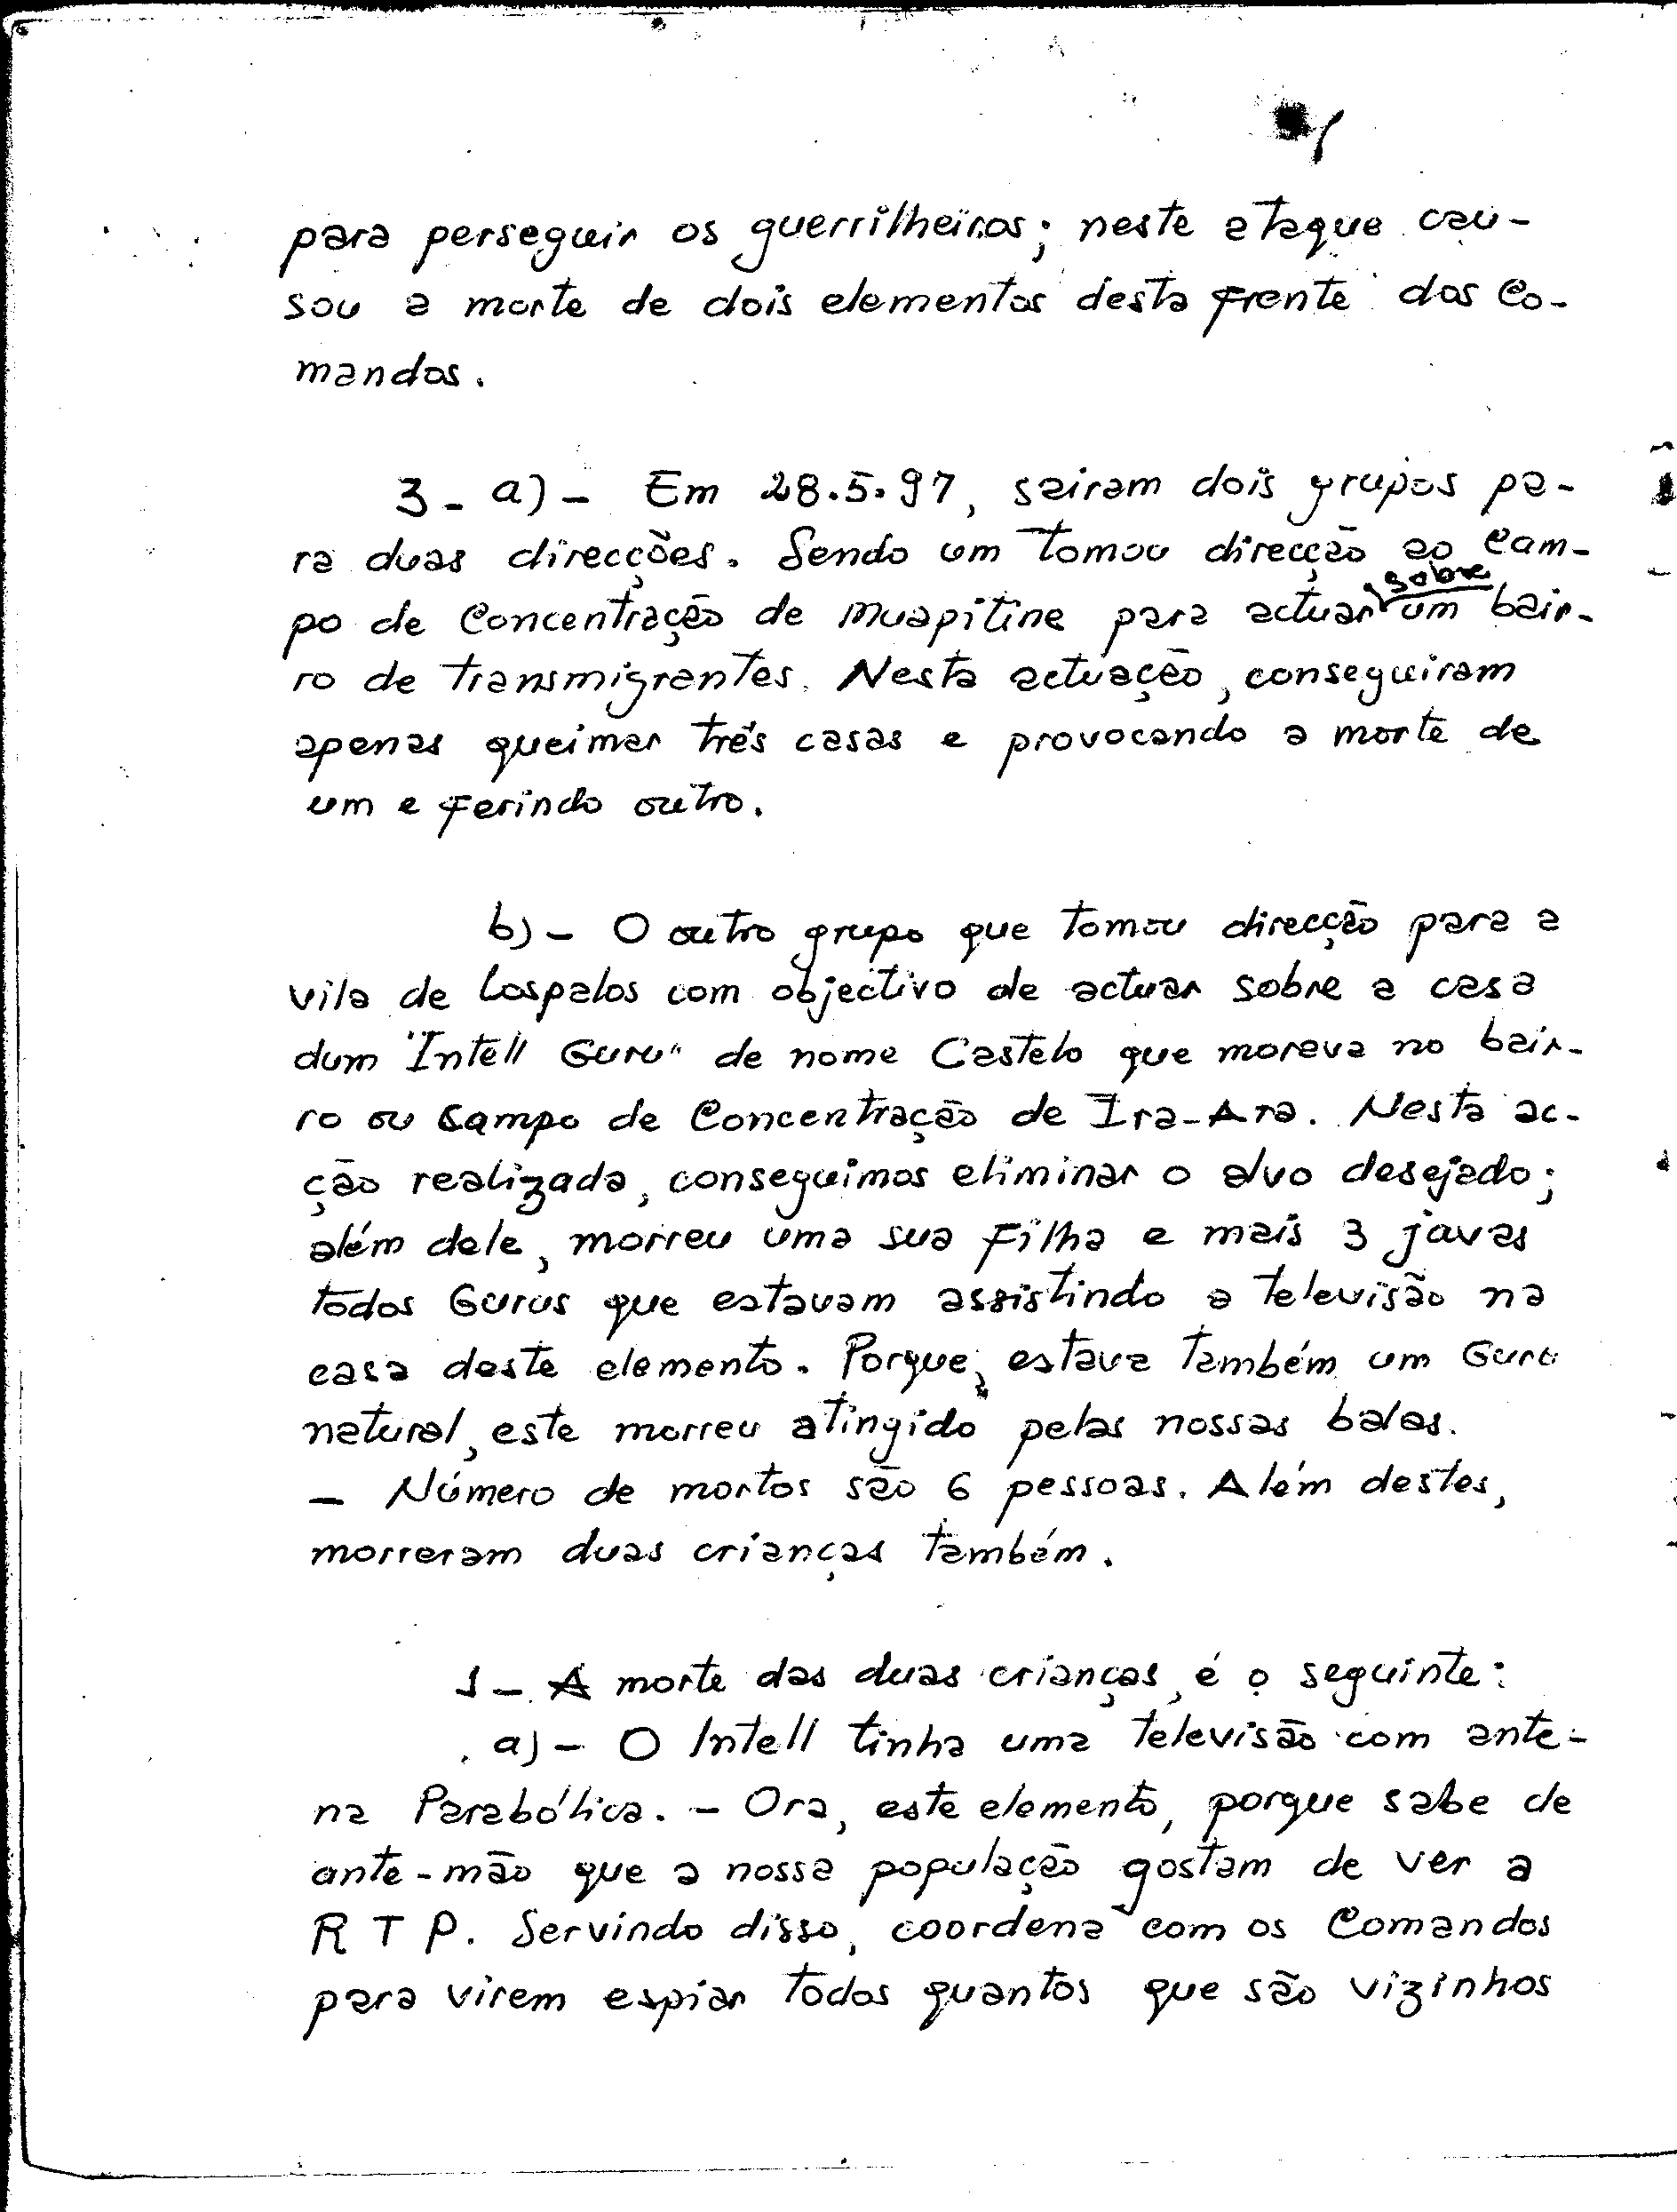 para perseguir os guerrilheiros; neste ataque cau-
sou a morte de dois elementos desta frente dos Co-
mandos.
3- a)- Em 28.5.97, sairam dois grupos pa-
ra duas direcções. Sendo um tomou direcção ao Cam-
po de Concentração de Muapitine para actuar sobre um bair-
ro de transmigrantes. Nesta actuação, conseguiram
apenas queimar três casas e provocando a morte de
um e ferindo outro.
b)- O outro grupo que tomou direcção para a
vila de Lospalos com objectivo de actuar sobre a casa
dum "Intell Guru" de nome Castelo que morava no bair-
ro ou Campo de Concentração de Ira-Ara. Nesta ac-
ção realizada, conseguimos eliminar o alvo desejado;
além dele, morreu uma sua filha e mais 3 javas
todos Gurus que estavam assistindo a televisão na
casa deste elemento. Porque, estava também um Guru
natural, este morreu atingido pelas nossas balas.
- Número de mortos são 6 pessoas. Além destes,
morreram duas crianças também.
1-. A morte das duas crianças, é o seguinte:
a)- O Intell tinha uma televisão com ante-
na Parabólica. - Ora, este elemento, porque sabe de
ante-mão que a nossa população gostam de ver a
R T P. Servindo disso, coordena com os Comandos
para virem espiar todos quantos que são vizinhos